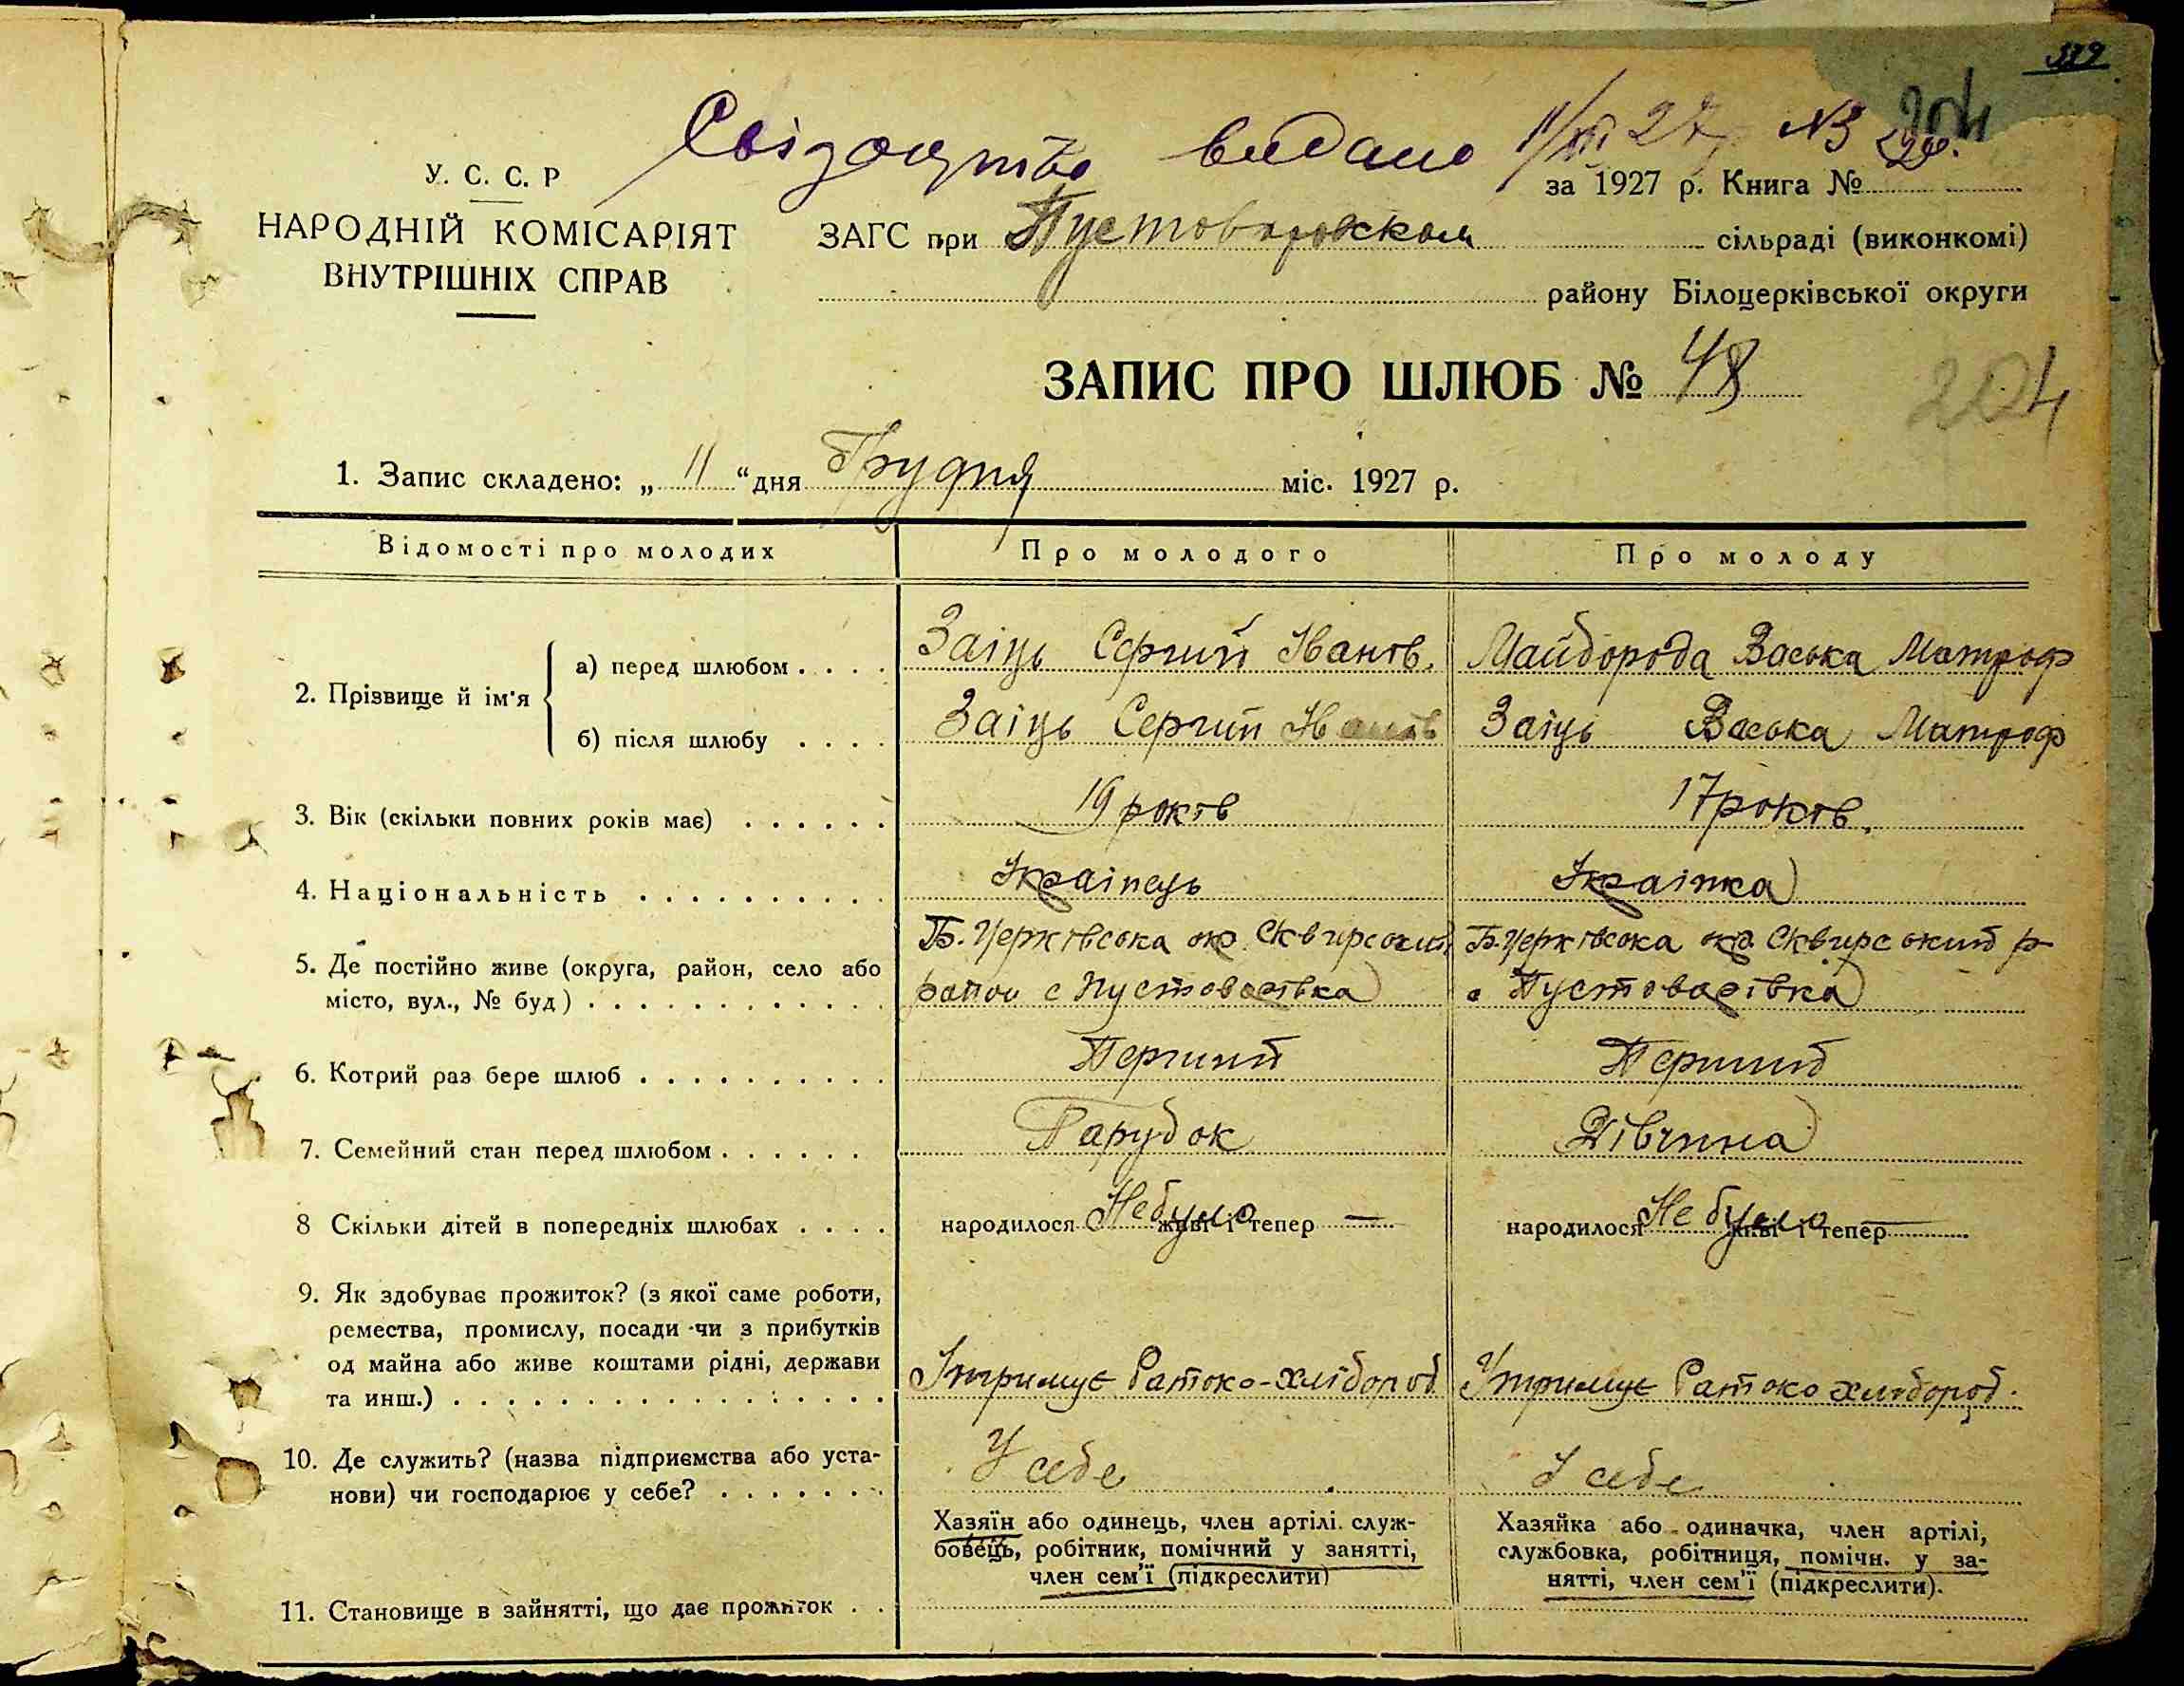 204
Свідоцтво видано 11/XII 27 №
У. С. С. Р
за 1927 р. Книга №
НАРОДНІЙ КОМІСАРІЯТ
ВНУТРІШНІХ СПРАВ
ЗАГС при Пустоваровском сільраді (виконкомі)
району Білоцерківської округи
ЗАПИС ПРО ШЛЮБ № 48
204
1. Запис складено: „ 11 “ дня Грудня міс. 1927 р.
Відомості про молодих Про молодого Про молоду
2. Прізвище й ім'я
а) перед шлюбом . . . . Заіць Сергий Іванов. Майборода Васька Матроф
б) після шлюбу . . . . Заіць Сергий Іванов Заіць Васька Матроф
3. Вік (скільки повних років має) . . . . . . 19 років 17 років.
4. Національність . . . . . . . . . . Українець Українка
5. Де постійно живе (округа, район, село або Б. Церківська окр. Сквирський Б. Церківська окр. Сквирський р
місто, вул., № буд) . . . . . . . . . . . . район с Пустоварівка с Пустоварівка
6. Котрий раз бере шлюб . . . . . . . . . . Перший Перший
7. Семейний стан перед шлюбом . . . . . . Парубок Дівчина
8 Скільки дітей в попередніх шлюбах . . . . народилося Не було живі і тепер — народилося Не було живі і тепер —
9. Як здобуває прожиток? (з якої саме роботи,
ремества, промислу, посади чи з прибутків
од майна або живе коштами рідні, держави
та инш.) . . . . . . . . . . . . . . . . . Утримує Батько-хлібороб Утримує Батько хлібороб.
10. Де служить? (назва підприємства або уста-
нови) чи господарює у себе? . . . . . . . У себе У себе
Хазяїн або одинець, член артілі. служ-
бовець, робітник, помічний у занятті,
член сем'ї (підкреслити)
Хазяйка або одиначка, член артілі,
службовка, робітниця, помічн. у за-
нятті, член сем'ї (підкреслити).
11. Становище в зайнятті, що дає прожиток . .